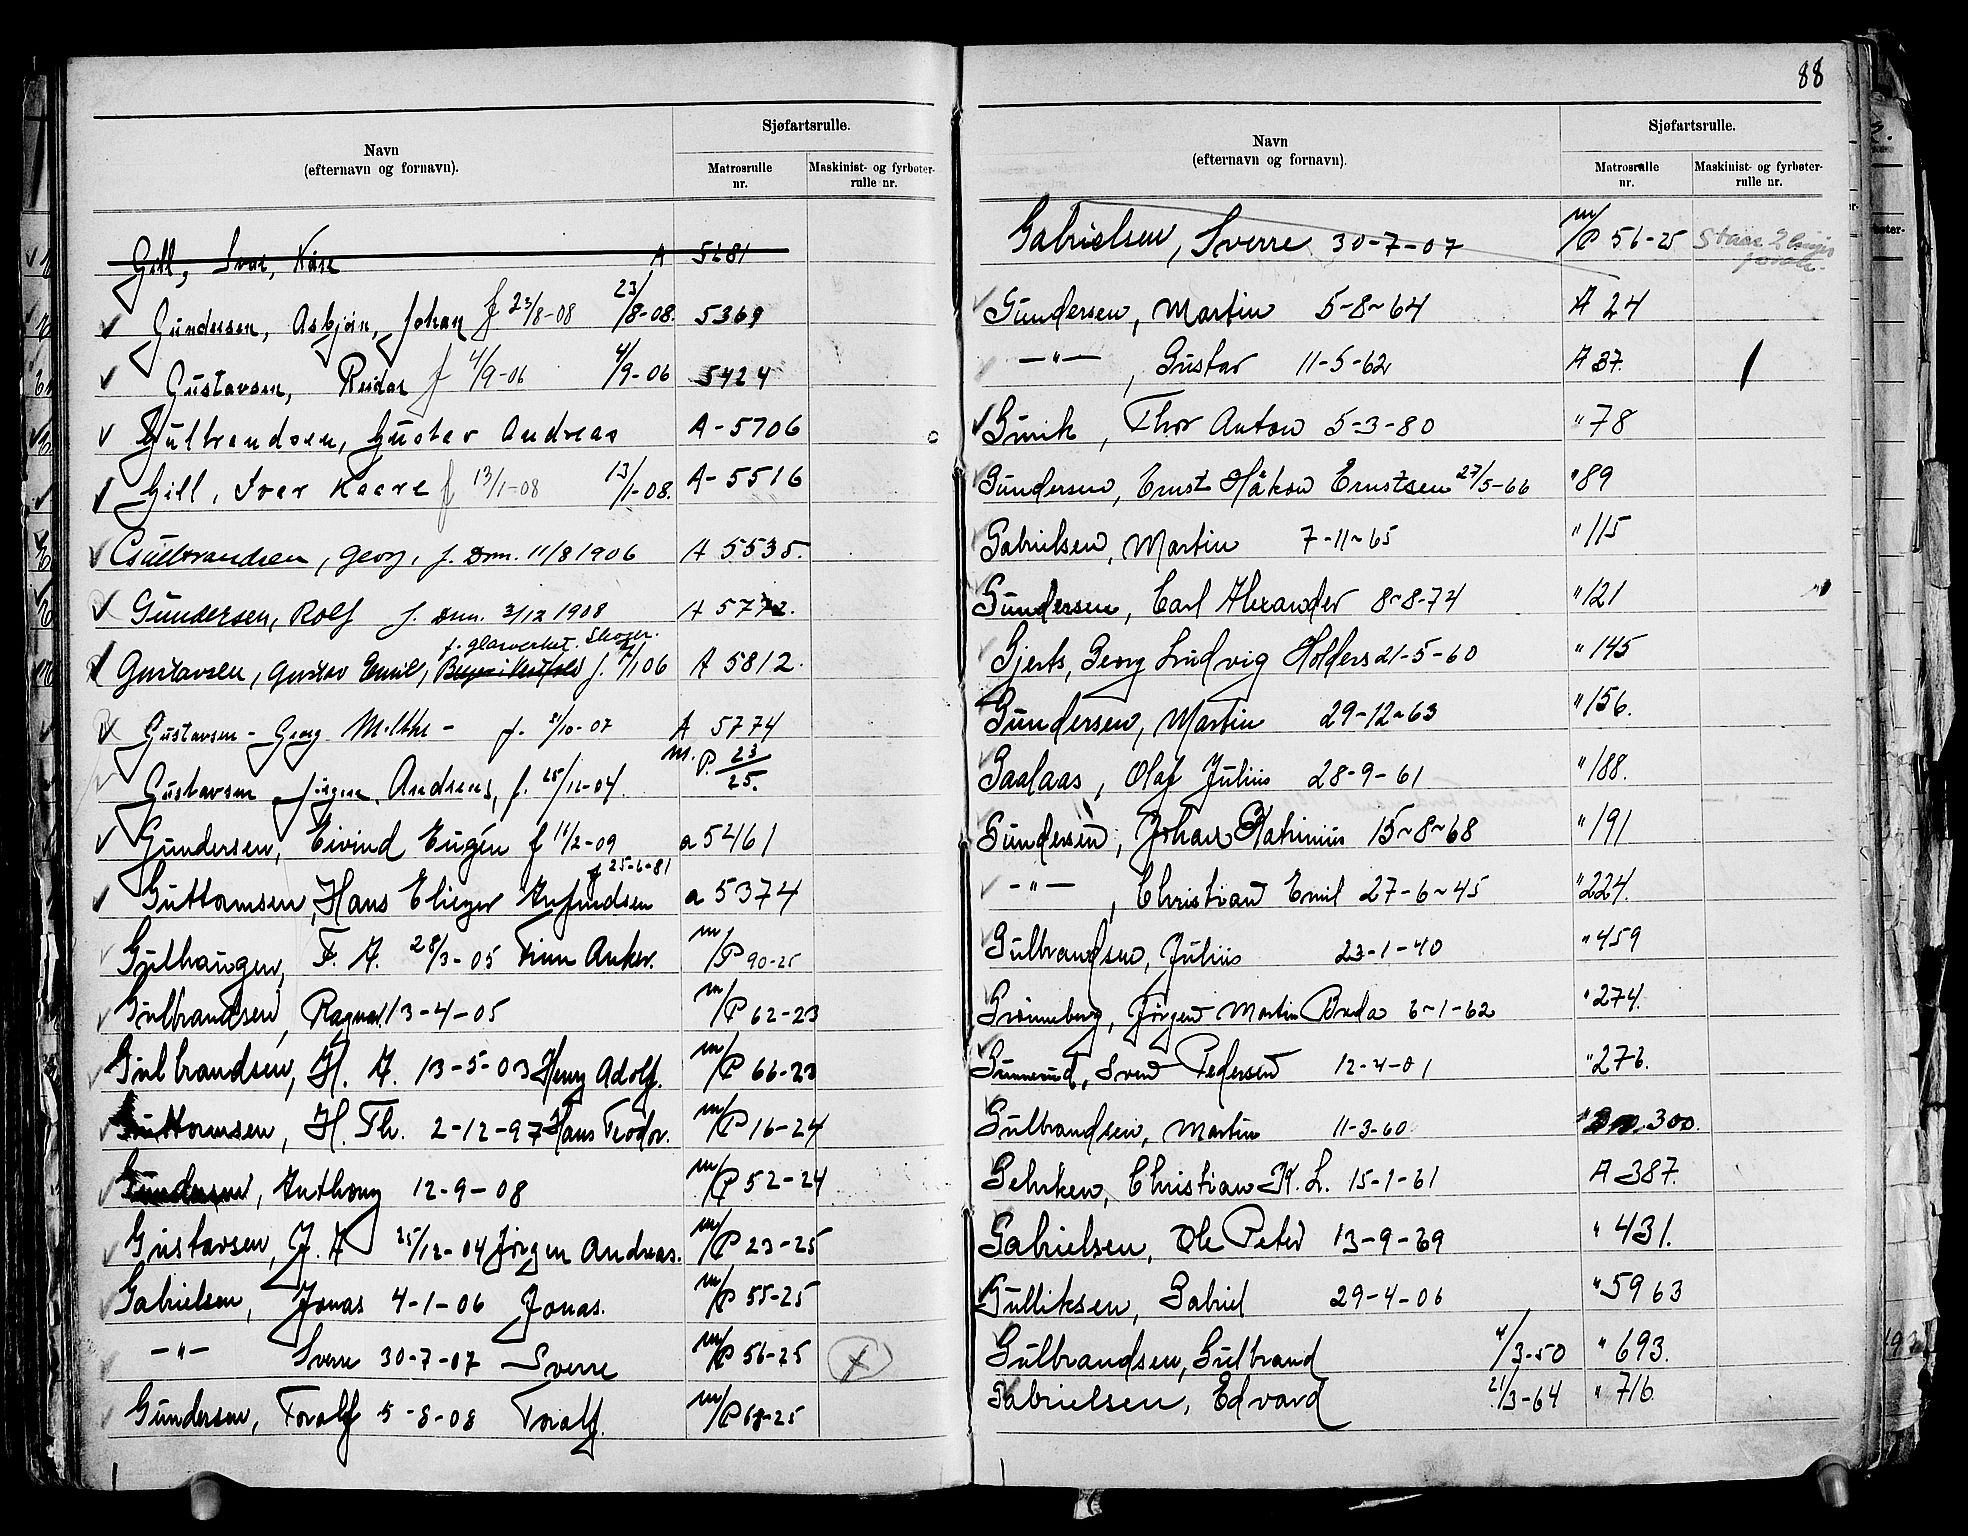 Navn
(efternavn og fornavn).
Sjøfartsrulle.
Matrosrulle
nr.
Maskinist- og fyrbøter-
rulle nr.
Gill, Ivar, Kåre A 5281
Gundersen, Asbjørn, Johan f 23/8-08 23/8-08. 5369
Gustavsen, Reidar f 4/9-06 4/9-06 5424
Gulbrandsen, Gustav Andreas A-5706
Gill, Iver Kaare f 13/1-08 13/1-08. A-5516
Gulbrandsen, Georg, f. Drm. 11/8 1906 A 5535.
Gundersen, Rolf f. Drm. 3/12 1908 A 5772.
f. glasverket. Skoger.
Gustavsen, Gustav Emil, f. 7/1 06 A 5812.
Gustavsen - Georg - f. 8/10-07 A 5774
Gustavsen Jørgen Andreas, f. 25/12-04. m. P. 23/25.
Gundersen, Eivind Eugén f 11/2-09 a 5461
f 25-6-81
Guttormsen, Hans Elieser Anfindsen a 5374
Gulhaugen, F. A. 28/3-05 Finn Anker. m/P 90-25
Gulbrandsen, Ragnar 13-4-05 m/P 62-23
Gulbrandsen, H. A. 13-5-03 Henry Adolf. m/P 66-23
Guttormsen, H. Th. 2-12-97 Hans Teodor. m/P 16-24
Gundersen, Anthony 12-9-08 m/P 52-24
Gustavsen, J. A 25/12-04 Jørgen Andreas. m/P 23-25
Gabrielsen, Jonas 4-1-06 Jonas. m/P 55-25
-"- Sverre 30-7-07 Sverre m/P 56-25 x
Gundersen, Toralf 5-8-08 Toralf. m/P 68-25
88
Navn
(efternavn og fornavn).
Sjøfartsrulle.
Matrosrulle
nr.
Maskinist- og fyrbøter-
rulle nr.
Gabrielsen, Sverre 30-7-07 m/P 56-25
Gundersen, Martin 5-8-64 A 24
-"-, Gustav 11-5-62 A 37.
Gmik, Thor Anton 5-3-80 " 78
Gundersen, Ernst Håkon Ernstsen 27/5-66 " 89
Gabrielsen, Martin 7-11-65 " 115
Gundersen, Carl Alexander 8-8-74 " 121
Gjerts, Georg Ludvig Holders 21-5-60 " 145
Gundersen, Martin 29-12-63 " 156.
Gaalaas, Olaf Julius 28-9-61 " 188.
Gundersen, Johan Katinius 15-8-68 " 191
-"-, Christian Emil 27-6-45 " 224.
Gulbrandsen, Julius 23-1-40 " 459
Grønneberg, Jørgen Martin Breda 6-1-62 " 274.
Gunnerud, Sven Pedersen 12-4-01 " 276.
Gulbrandsen, Martin 11-3-60 300.
Gehrken, Christian K. L. 15-1-61 A 387.
Gabrielsen, Ole Peter 13-9-29 " 431.
Gulliksen, Gabriel 29-4-06 " 5963
Gulbrandsen, Gulbrand 4/3-50 " 693.
Gabrielsen, Edvard 21/3-64 " 716.